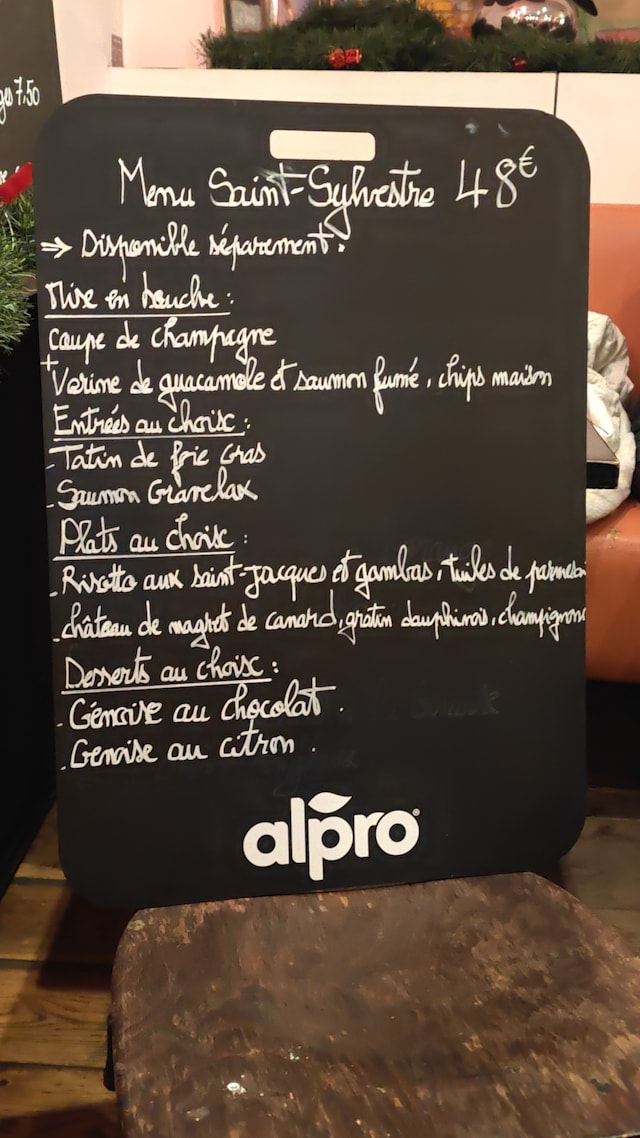 ges 7,50
Menu Saint-Sylvestre 48€
⇒ Disponible séparement.
Mise en bouche :
Coupe de champagne
+
Verine de guacamole et saumon fumé, chips maison
Entrées au choix :
- Tatin de foie Gras
- Saumon Gravelax
Plats au choix :
- Risotto aux saint-jacques et gambas, tuiles de parmesan
- château de magret de canard, gratin dauphinois, champignons
Desserts au choix :
- Génoise au chocolat.
- Genoise au citron.
alpro®